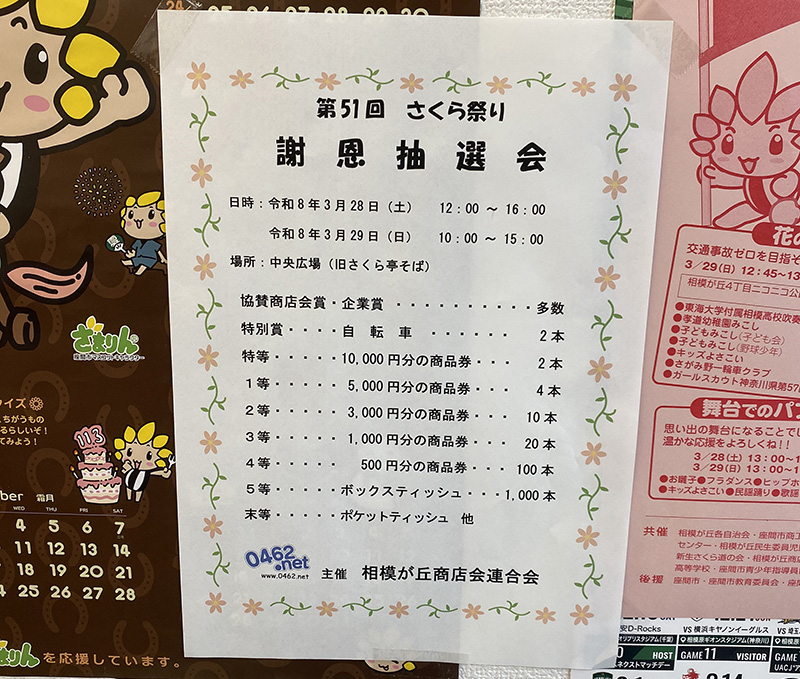 第51回 さくら祭り
謝恩抽選会
日時：令和8年3月28日（土） 12：00 ～ 16：00
令和8年3月29日（日） 10：00 ～ 15：00
場所：中央広場（旧さくら亭そば）
協賛商店会賞・企業賞 ・・・・・・・・・・ 多数
特別賞・・・・自 転 車 ・・・・・・・ 2本
特等・・・・・10,000円分の商品券・・・ 2本
1等・・・・・ 5,000円分の商品券・・・ 4本
2等・・・・・ 3,000円分の商品券・・・ 10本
3等・・・・・ 1,000円分の商品券・・・ 20本
4等・・・・・ 500円分の商品券・・・ 100本
5等・・・・・ボックスティッシュ・・・1,000本
末等・・・・・ポケットティッシュ 他
0462.net
www.0462.net
主催 相模が丘商店会連合会
24 25 26 27 28 29 30
ざまりん
座間市マスコットキャラクター
イズ
ちがうもの
るらしいぞ！
てみよう！
113
ber 霜月
WED THU FRI SAT
4 5 6 7
11 12 13 14
18 19 20 21
25 26 27 28
りんを応援しています。
花の
交通事故ゼロを目指そ
3／29(日) 12:45～13
相模が丘4丁目ニコニコ公
●東海大学付属相模高校吹奏
●孝道幼稚園みこし
●子どもみこし(子ども会)
●子どもみこし(野球少年)
●キッズよさこい
●さがみ野一輪車クラブ
●ガールスカウト神奈川県第57
舞台でのパフ
思い出の舞台になることでし
温かな応援をよろしくね!!
3／28(土) 13:00～1
3／29(日) 13:00～1
●お囃子●フラダンス●ヒップホ
●キッズよさこい●民謡踊り●歌謡
共催 相模が丘各自治会・座間市商工
センター・相模が丘民生委員児
新生さくら道の会・相模が丘商店
高等学校・座間市青少年指導員
後援 座間市・座間市教育委員会・座
安D-Rocks
VS 横浜キヤノンイーグルス
VS 埼玉
オリプリスタジアム(千葉)
相模原ギオンスタジアム(神奈川)
HOST
GAME 11 VISITOR
GAME
ネクストマッチデー
UACJ